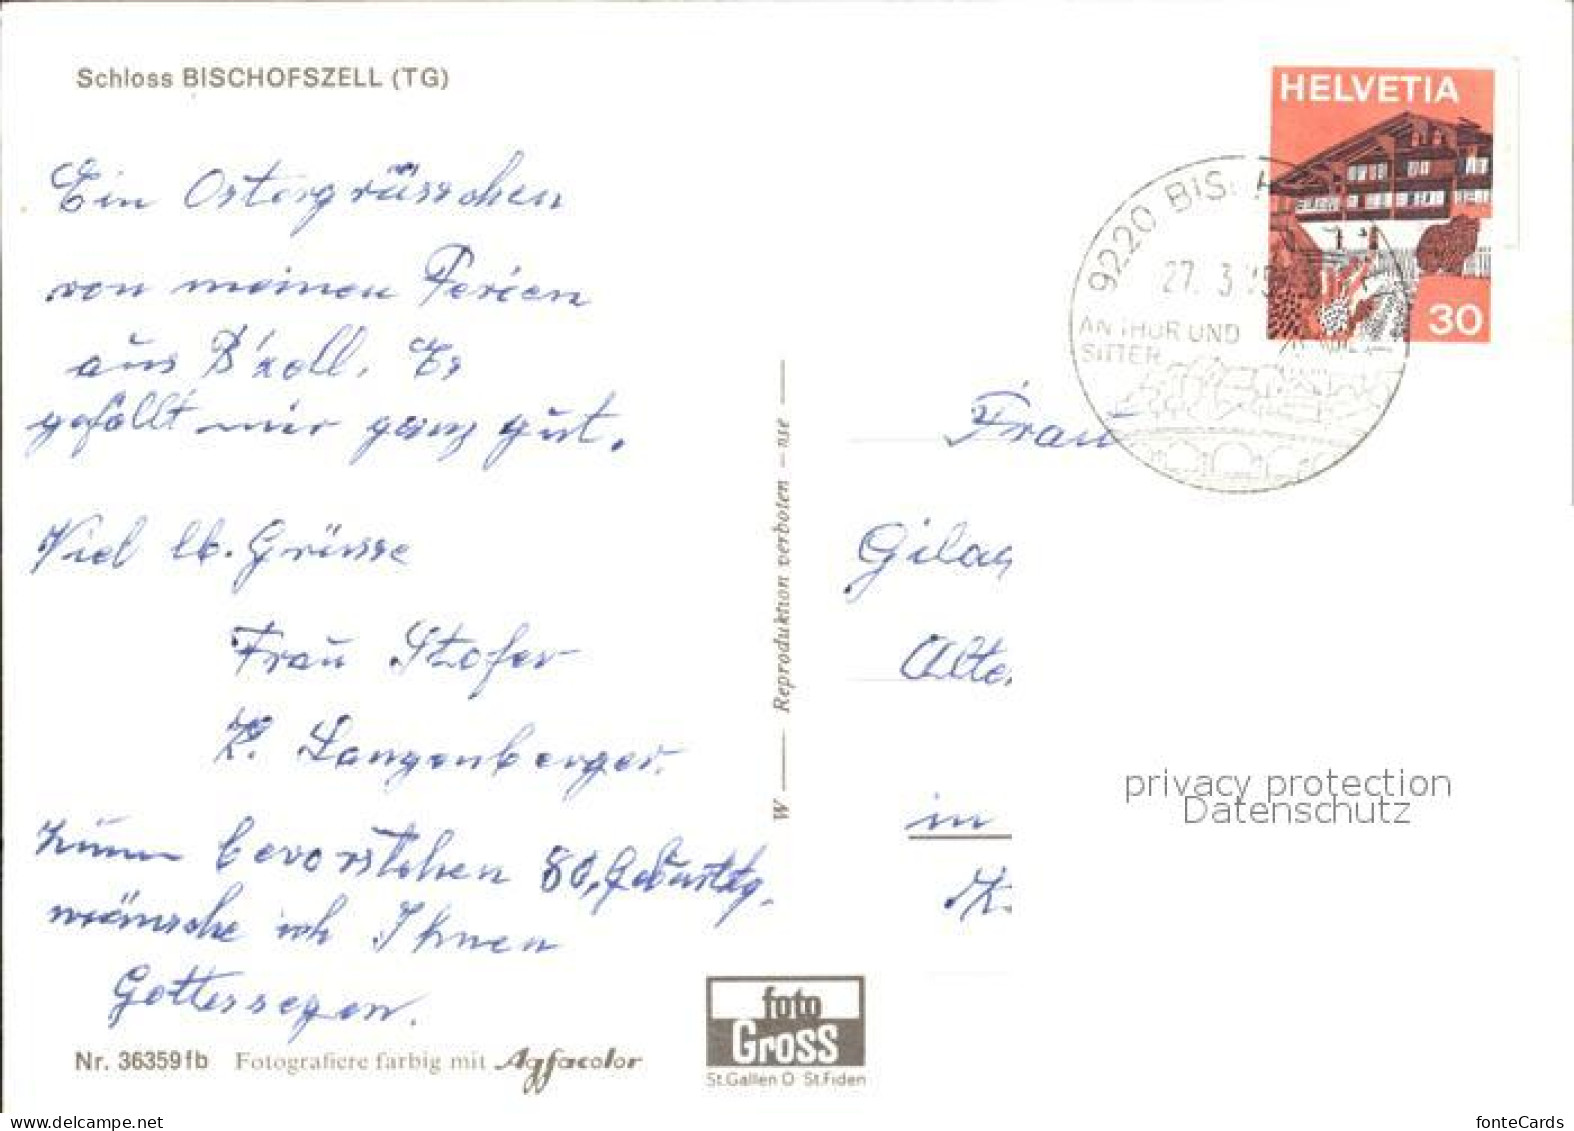 Schloss BISCHOFSZELL (TG)
HELVETIA
30
9220 BIS
27. 3
AN THUR UND
SITTER
Ein Ostergrüsschen
von meinen Ferien
aus B'zell. Es
gefällt mir ganz gut.
Viel lb. Grüsse
Frau Stofer
Langenberger.
Zum bevorstehen 80. Geburtstag,
wünsche ich Ihnen
Gottessegen.
Frau
in
W — Reproduktion verboten – nse —
privacy protection
Datenschutz
foto
GROSS
St. Gallen O St. Fiden
Nr. 36359fb Fotografiere farbig mit Agfacolor
www.delcampe.net
fonteCards